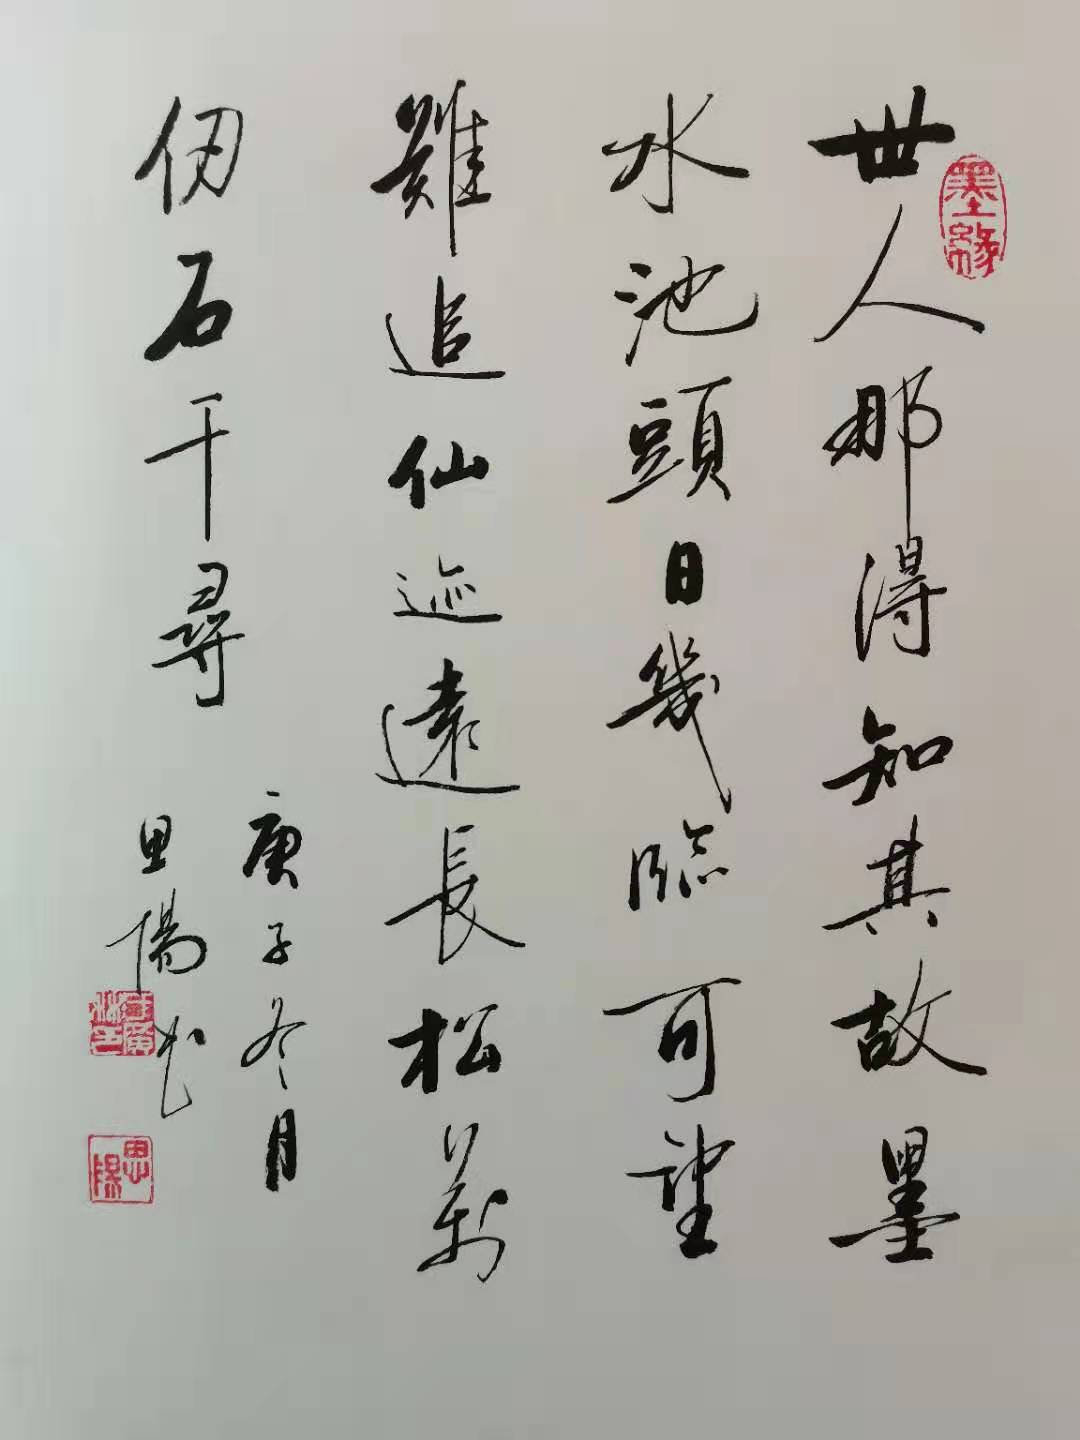 世人那得知其故墨
水池頭日幾臨可望
難追仙迹遠長松萬
仞石千尋
庚子冬月
思陽书
墨緣
思陽